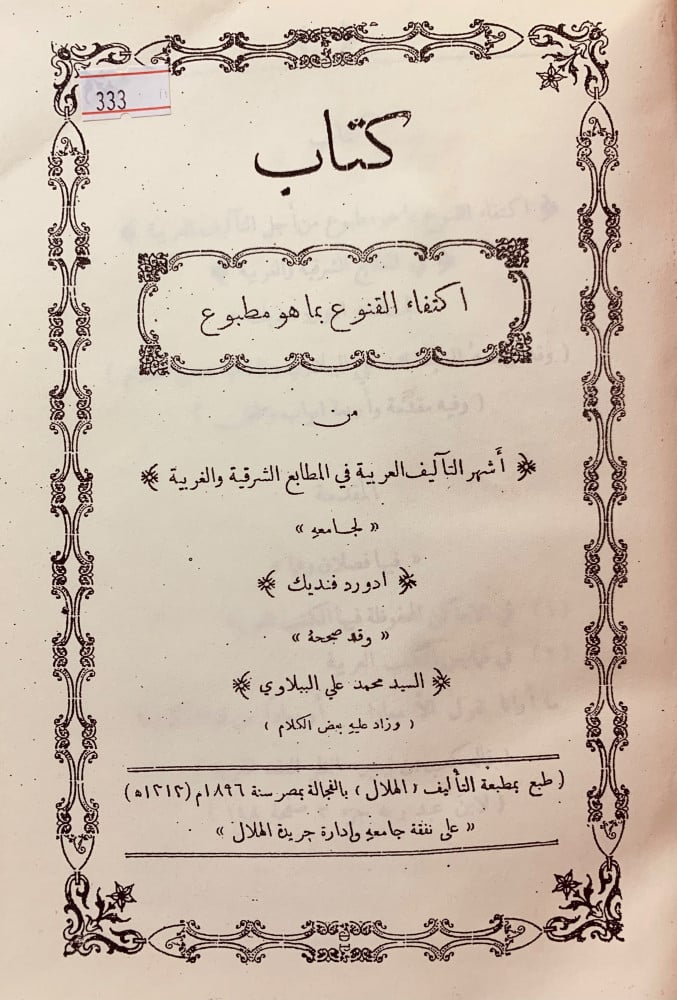 333
كتاب
اكتفاء القنوع بما هو مطبوع
من
أشهر التآليف العربية في المطابع الشرقية والغربية
« لجامعه »
ادورد فنديك
« وقد صححهُ »
السيد محمد علي الببلاوي
( وزاد عليه بعض الكلام )
( طبع بمطبعة التأليف « الهلال » بالفجالة بمصر سنة ١٨٩٦ م (١٣١٣ ه)
« على نفقة جامعه وإدارة جريدة الهلال »